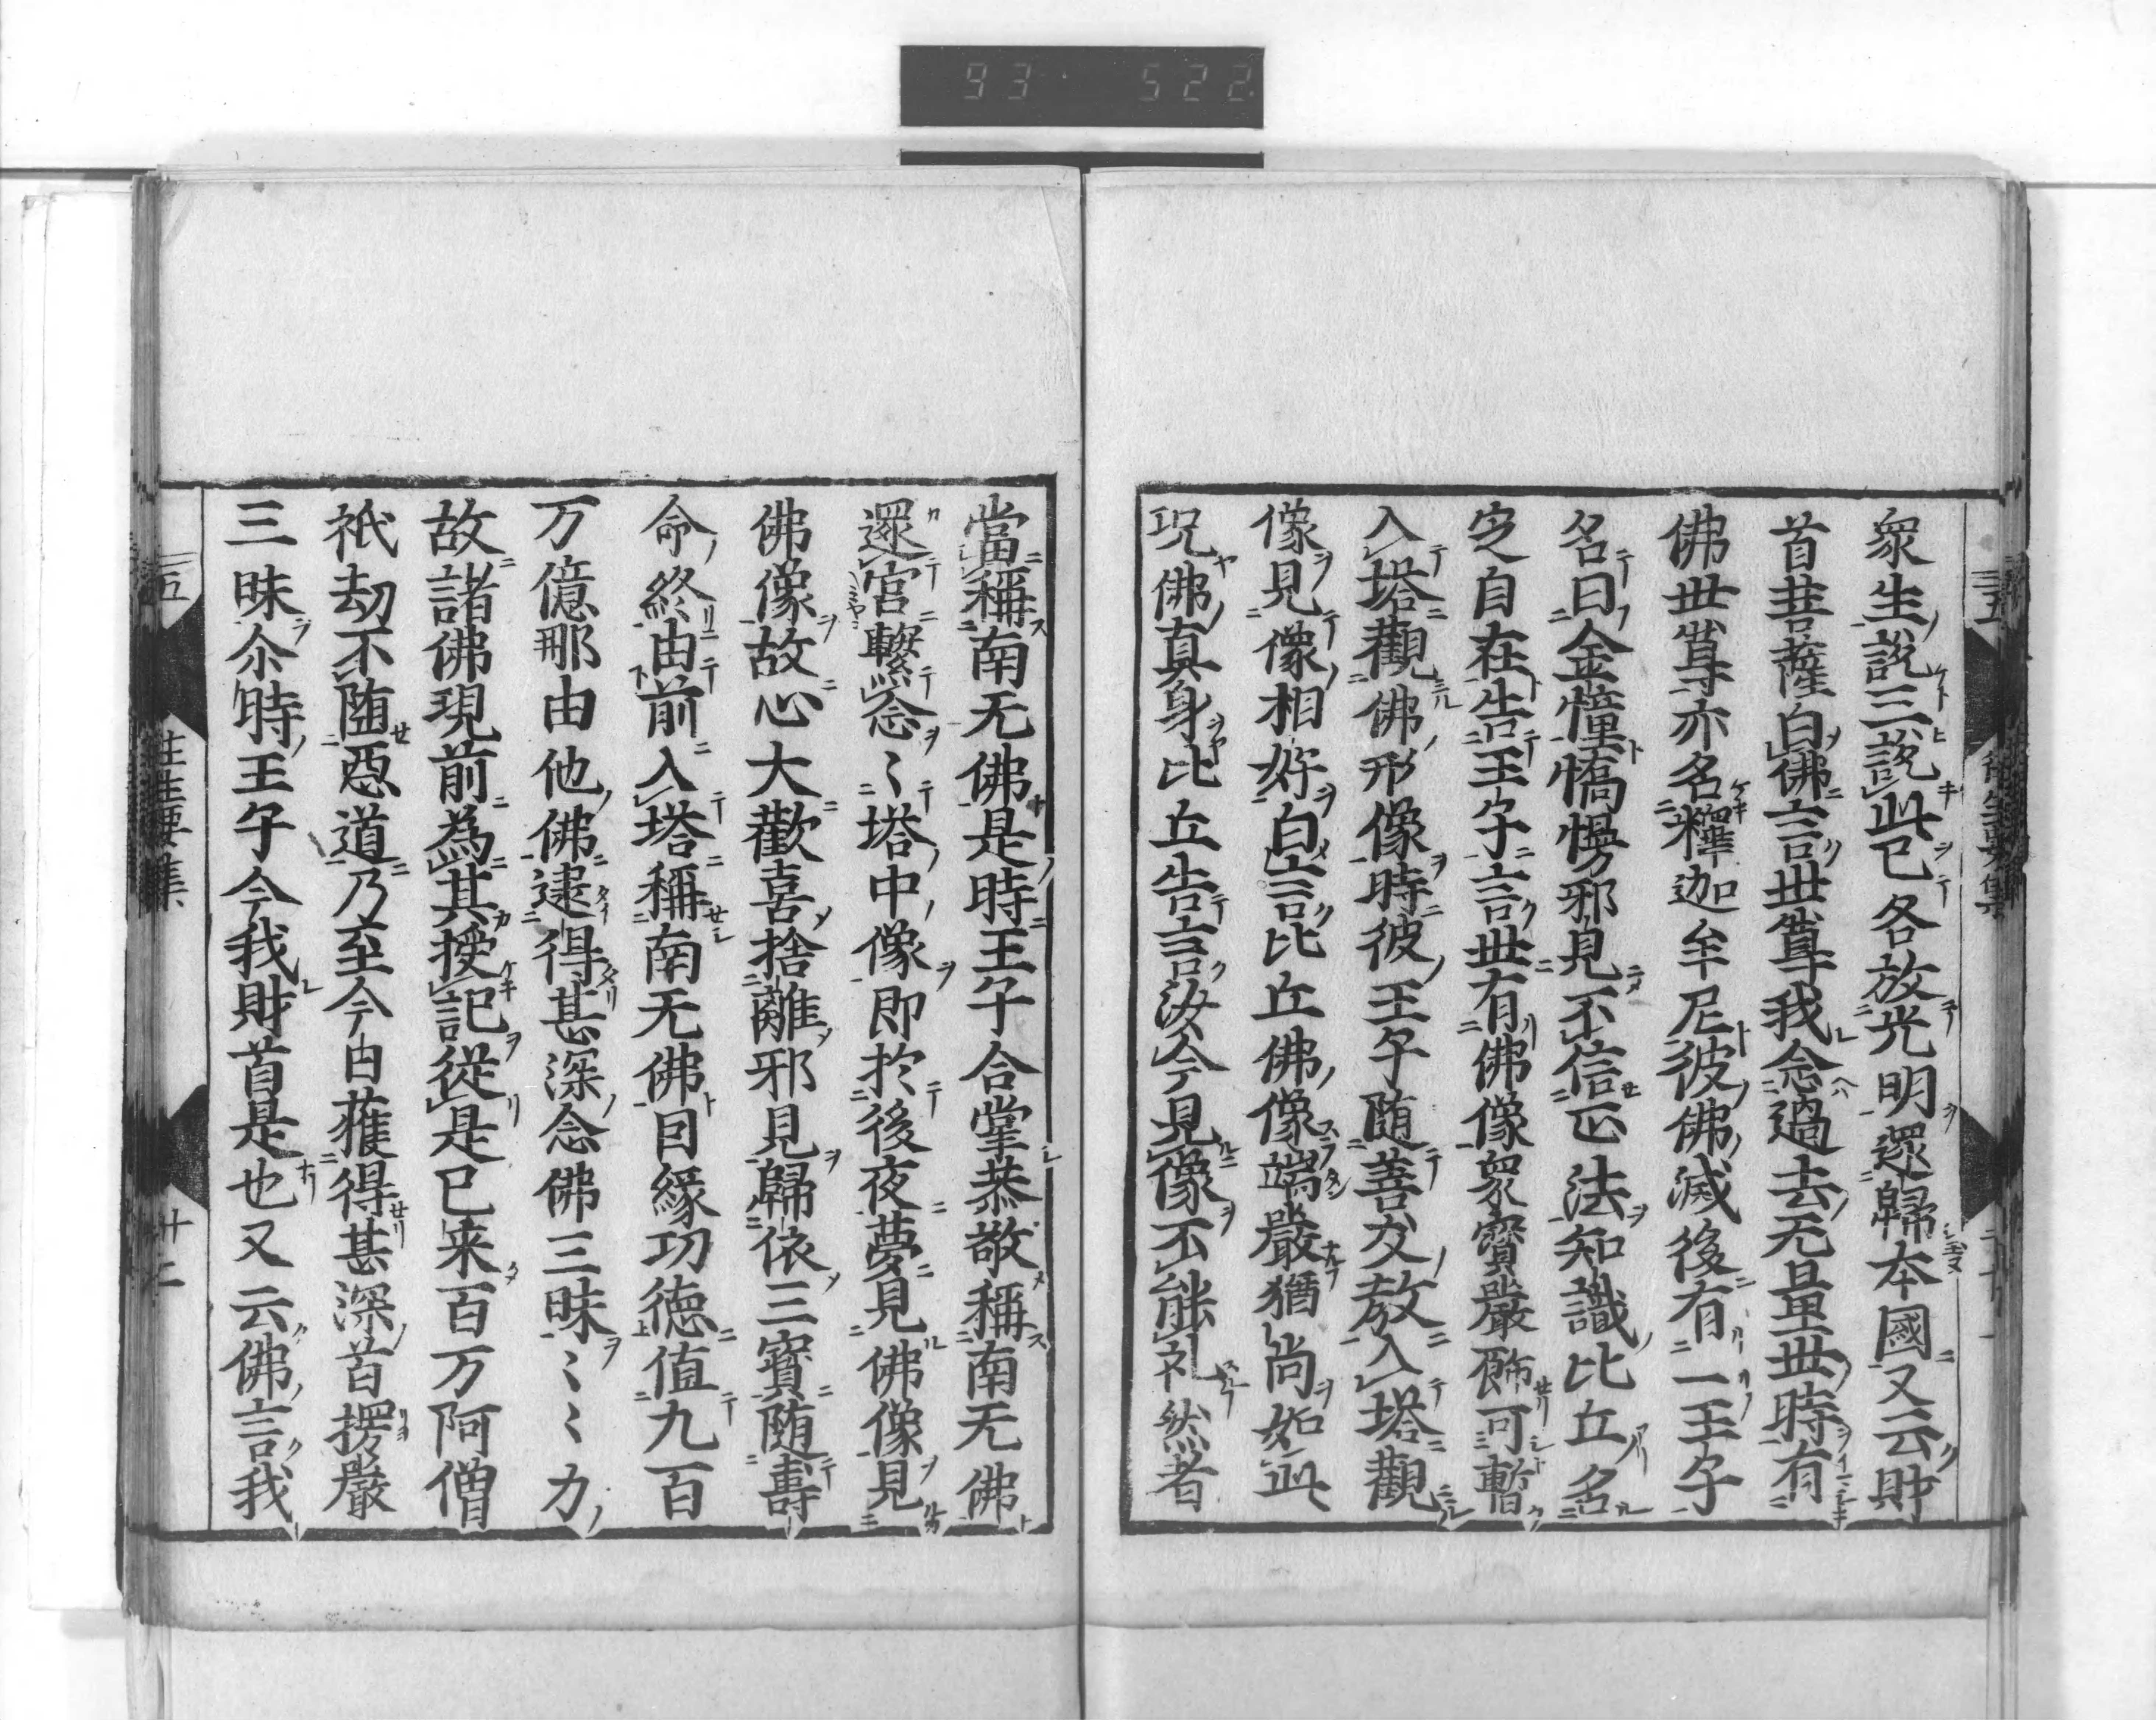 93 522
衆生說三説此已各放光明還歸本國又云財
首菩薩白佛言世尊我念過去无量世時有
佛世尊亦名釋迦牟尼彼佛滅後有一王子
名曰金憧憍慢邪見不信正法知識比丘名
定自在告王子言世有佛像衆寳嚴飾可暫
入塔觀佛形像時彼王子随善友教入塔觀
像見像相好白言比丘佛像端嚴猶尚如此
况佛真身比丘告言汝今見像不能礼然者
當稱南无佛是時王子合掌恭敬稱南无佛
還宮繫念〻塔中像即於後夜夢見佛像見
佛像故心大歡喜捨離邪見歸依三寳随壽
命終由前入塔稱南无佛因縁功徳値九百
万億那由他佛逮得甚深念佛三昧〻〻力
故諸佛現前為其授記從是已来百万阿僧
祇劫不随惡道乃至今日獲得甚深首楞嚴
三昧尒時王子今我財首是也又云佛言我
五
往生要集
廿二